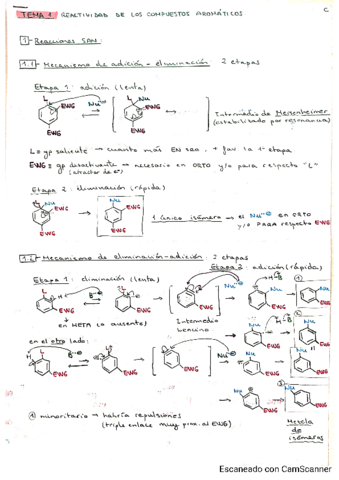 C
TEMA 1 REACTIVIDAD DE LOS COMPUESTOS AROMÁTICOS
1 - Reacciones SAN:
1.1 - Mecanismo de adición - eliminación 2 etapas
Etapa 1: adición (lenta)
L EWG Nu⊖ L Nu EWG
EWG EWG
Intermedio de Meisenheimer
(estabilizado por resonancia)
L = gp saliente → cuanto más EN sea, + fav la 1ª etapa
EWG = gp desactivante → necesario en ORTO y/o para respecto "L"
(atractor de e⁻)
Etapa 2: eliminación (rápida)
L Nu EWG Nu EWG
EWG EWG
1 único isómero → el Nu⊖ en ORTO
y/o PARA respecto EWG
1.2 - Mecanismo de eliminación-adición: 2 etapas
Etapa 1: eliminación (lenta) Etapa 2: adición (rápida)
L H B⊖ L Nu⊖ H-B Nu
EWG EWG EWG EWG EWG
en META (o ausente)
Intermedio
bencino
en el otro lado:
L EWG L EWG EWG Nu⊖ Nu EWG
Nu EWG Nu EWG
minoritario → habría repulsiones
(triple enlace muy prox. al EWG)
Mezcla
de
isómeros
Escaneado con CamScanner